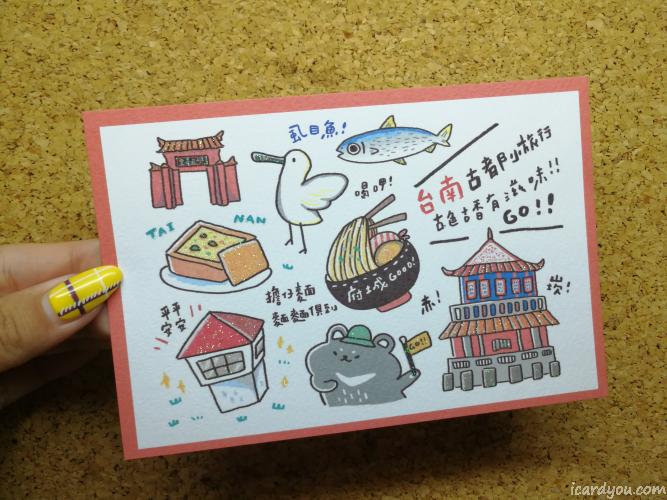 虱目魚!
台南古都小旅行
古色古香有滋味!!
GO!!
喝呷!
TAI NAN
府城GOOD!
擔仔麵
麵麵俱到
平平
安安
赤!
崁!
GO!!
icardyou.com